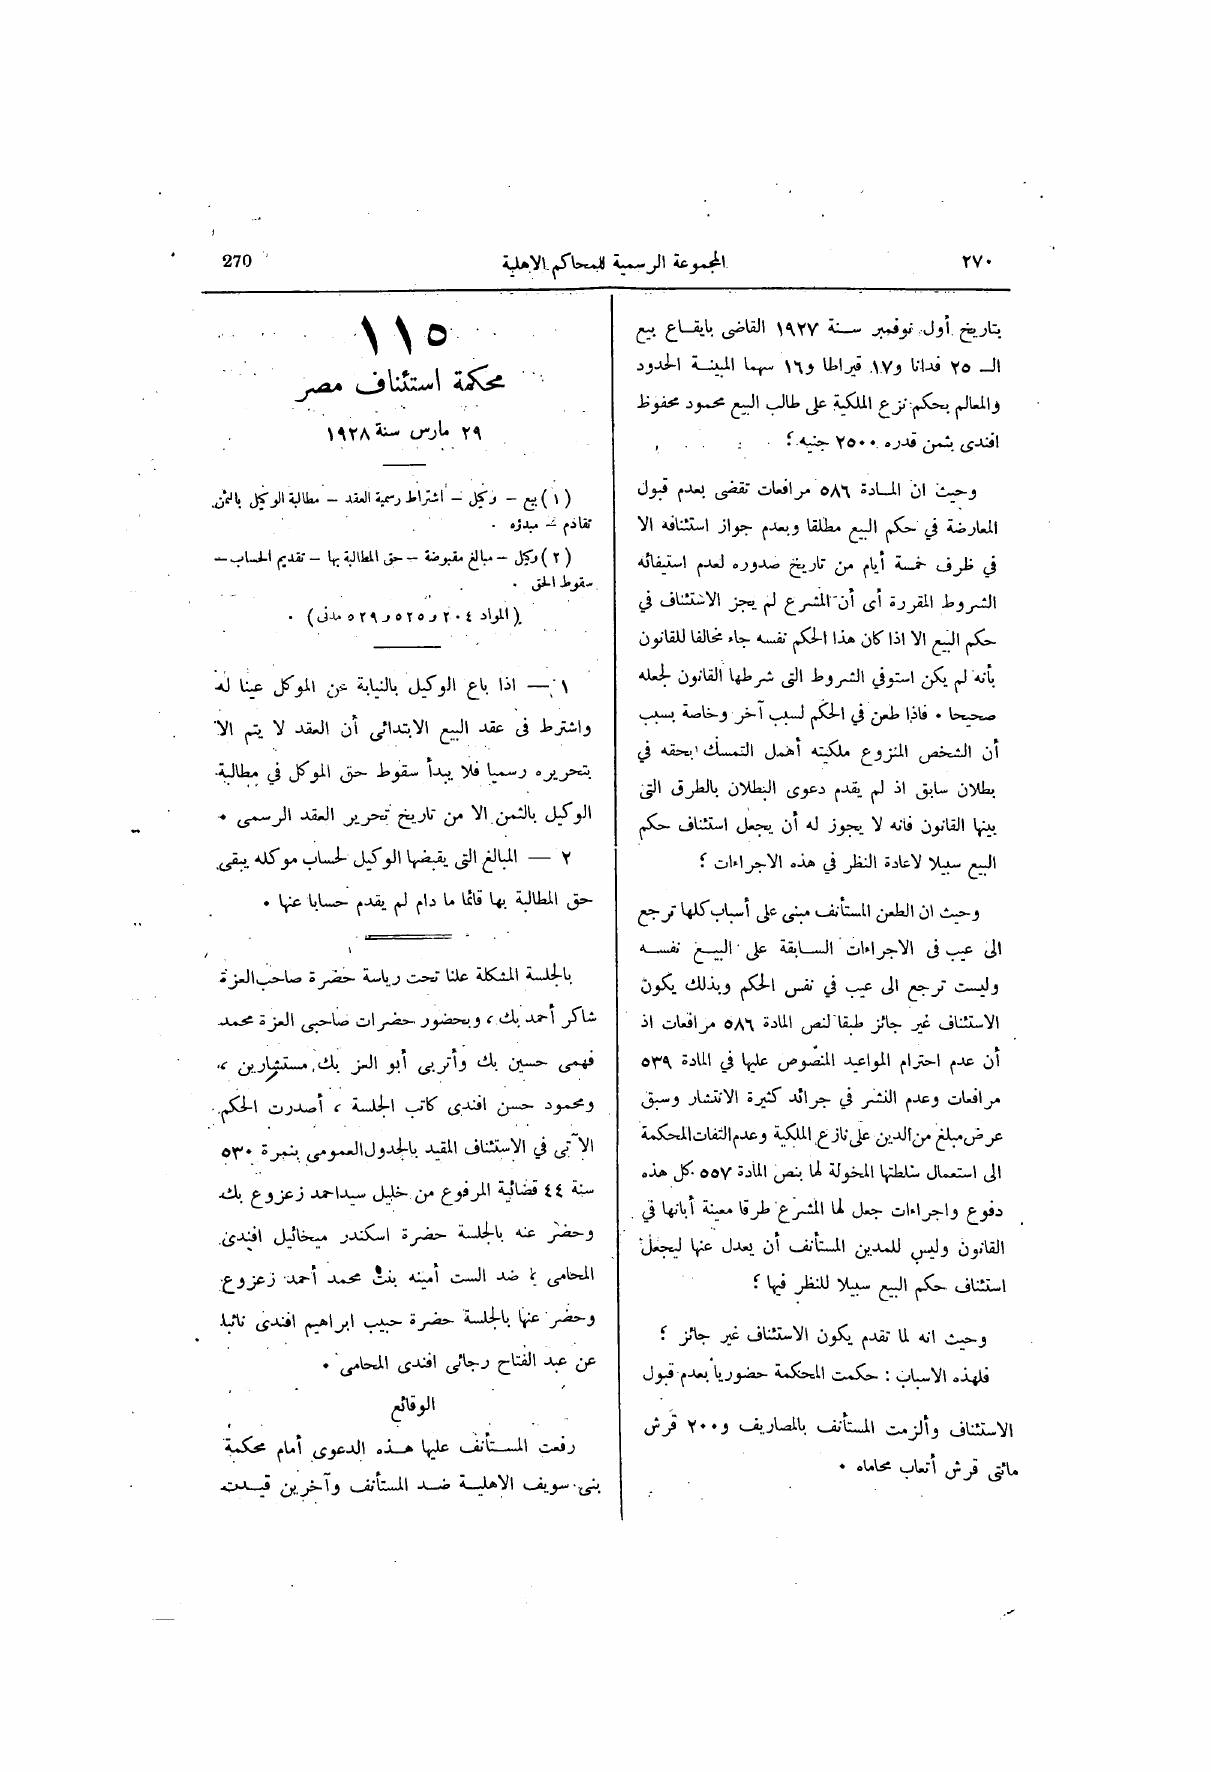 ٢٧٠
المجموعة الرسمية للمحاكم الاهلية
270
بتاريخ أول نوفمبر سنة ١٩٢٧ القاضى بايقاع بيع
الـ ٢٥ فدانا و١٧ قيراطا و١٦ سهما المبينة الحدود
والمعالم بحكم نزع الملكية على طالب البيع محمود محفوظ
افندى بثمن قدره ٢٥٠٠ جنيه ؛
وحيث ان المادة ٥٨٦ مرافعات تقضى بعدم قبول
المعارضة في حكم البيع مطلقا وبعدم جواز استئنافه الا
في ظرف خمسة أيام من تاريخ صدوره لعدم استيفائه
الشروط المقررة أى أن المشرع لم يجز الاستئناف في
حكم البيع الا اذا كان هذا الحكم نفسه جاء مخالفا للقانون
بأنه لم يكن استوفي الشروط التى شرطها القانون لجعله
صحيحا . فاذا طعن في الحكم لسبب آخر وخاصة بسبب
أن الشخص المنزوع ملكيته أهمل التمسك بحقه في
بطلان سابق اذ لم يقدم دعوى البطلان بالطرق التى
بينها القانون فانه لا يجوز له أن يجعل استئناف حكم
البيع سبيلا لاعادة النظر في هذه الاجراءات ؛
وحيث ان الطعن المستأنف مبنى على أسباب كلها ترجع
الى عيب فى الاجراءات السابقة على البيع نفسه
وليست ترجع الى عيب في نفس الحكم وبذلك يكون
الاستئناف غير جائز طبقا لنص المادة ٥٨٦ مرافعات اذ
أن عدم احترام المواعيد المنصوص عليها في المادة ٥٣٩
مرافعات وعدم النشر في جرائد كثيرة الانتشار وسبق
عرض مبلغ من الدين على نازع الملكية وعدم التفات المحكمة
الى استعمال سلطتها المخولة لها بنص المادة ٥٥٧ كل هذه
دفوع واجراءات جعل لها المشرع طرقا معينة أبانها في
القانون وليس للمدين المستأنف أن يعدل عنها ليجعل
استئناف حكم البيع سبيلا للنظر فيها ؛
وحيث انه لما تقدم يكون الاستئناف غير جائز ؛
فلهذه الاسباب : حكمت المحكمة حضوريا بعدم قبول
الاستئناف وألزمت المستأنف بالمصاريف و٢٠٠ قرش
مائتى قرش أتعاب محاماه .
١١٥
محكمة استئناف مصر
٢٩ مارس سنة ١٩٢٨
(١) بيع – وكيل – اشتراط رسمية العقد – مطالبة الوكيل بالثمن
تقادم – مبدؤه .
(٢) وكيل – مبالغ مقبوضة – حق المطالبة بها – تقديم الحساب –
سقوط الحق .
(المواد ٢٠٤ و٥٢٥ و٥٢٩ مدنى) .
١ — اذا باع الوكيل بالنيابة عن الموكل عينا له
واشترط فى عقد البيع الابتدائى أن العقد لا يتم الا
بتحريره رسميا فلا يبدأ سقوط حق الموكل في مطالبة
الوكيل بالثمن الا من تاريخ تحرير العقد الرسمى .
٢ — المبالغ التى يقبضها الوكيل لحساب موكله يبقى
حق المطالبة بها قائما ما دام لم يقدم حسابا عنها .
بالجلسة المشكلة علنا تحت رياسة حضرة صاحب العزة
شاكر أحمد بك ، وبحضور حضرات صاحبى العزة محمد
فهمى حسين بك وأتربى أبو العز بك مستشارين ،
ومحمود حسن افندى كاتب الجلسة ، أصدرت الحكم
الآتى في الاستئناف المقيد بالجدول العمومى بنمرة ٥٣٠
سنة ٤٤ قضائية المرفوع من خليل سيداحمد زعزوع بك
وحضر عنه بالجلسة حضرة اسكندر ميخائيل افندى
المحامى ، ضد الست أمينه بنت محمد أحمد زعزوع
وحضر عنها بالجلسة حضرة حبيب ابراهيم افندى نائبا
عن عبد الفتاح رجائى افندى المحامى .
الوقائع
رفعت المستأنف عليها هذه الدعوى أمام محكمة
بنى سويف الاهلية ضد المستأنف وآخرين قيدت